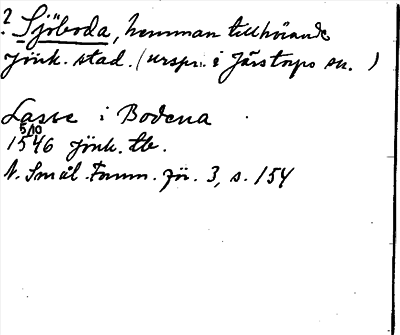 ? Sjöboda, hemman tillhörande
Jönk. stad. (urspr. i Järstorps sn.)
Lasse i Bodena
5/10
1546 Jönk. tb.
N. Smål. Fornm. för. 3, s. 154